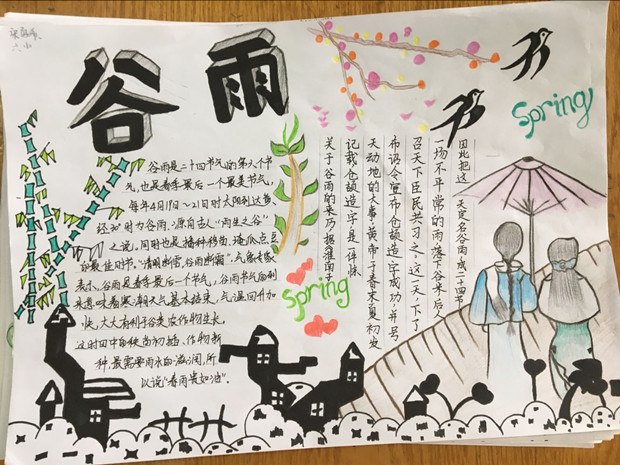 谷雨
谷雨是二十四节气的第六个节
气,也是春季最后一个节气,
每年4月19日～21日时太阳到达黄
经30°时为谷雨,源自古人"雨生百谷"
之说。同时也是播种移苗、埯瓜点豆
的最佳时节。"清明断雪,谷雨断霜",气象专家
表示,谷雨是春季最后一个节气,谷雨节气的到
来意味着寒潮天气基本结束,气温回升加
快,大大有利于谷类农作物生长,
这时田中的秧苗初插、作物新
种,最需要雨水的滋润,所
以说"春雨贵如油"。
Spring
Spring
关于谷雨的来历据淮南子
记载,仓颉造字是一件惊
天动地的大事,黄帝于春末夏初发
布诏令,宣布仓颉造字成功,并号
召天下臣民共习之。这一天,下了
一场不平常的雨,落下谷米,后人
因此把这一天定名谷雨,成二十四节